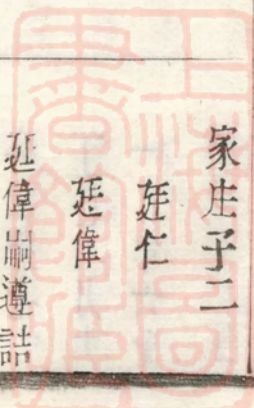 家庄子二
廷仁
廷偉
廷偉嗣遵詰